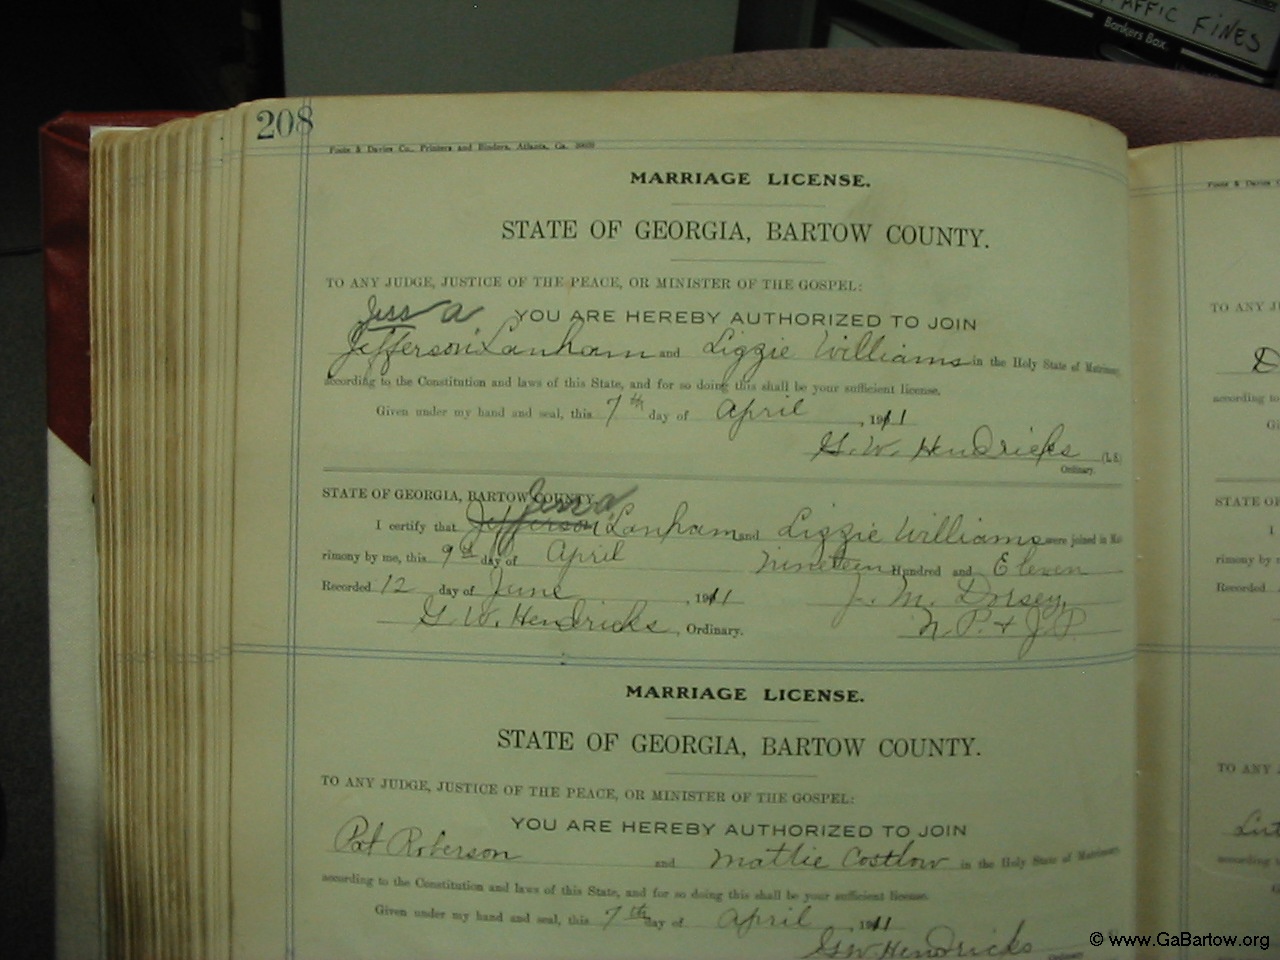 TRAFFIC FINES
Bankers Box
208
Foote & Davies Co., Printers and Binders, Atlanta, Ga.
MARRIAGE LICENSE.
STATE OF GEORGIA, BARTOW COUNTY.
TO ANY JUDGE, JUSTICE OF THE PEACE, OR MINISTER OF THE GOSPEL:
Jess a
YOU ARE HEREBY AUTHORIZED TO JOIN
Jefferson Lanham and Lizzie Williams in the Holy State of Matrimony
according to the Constitution and laws of this State, and for so doing this shall be your sufficient license.
Given under my hand and seal, this 7th day of April, 1911
G. W. Hendricks (L. S.)
Ordinary.
Jess a
STATE OF GEORGIA, BARTOW COUNTY.
I certify that Jefferson Lanham and Lizzie Williams were joined in Mat
rimony by me, this 9th day of April nineteen Hundred and Eleven
Recorded 12 day of June, 1911 J. M. Dorsey,
G. W. Hendricks, Ordinary. N. P. & J. P.
MARRIAGE LICENSE.
STATE OF GEORGIA, BARTOW COUNTY.
TO ANY JUDGE, JUSTICE OF THE PEACE, OR MINISTER OF THE GOSPEL:
YOU ARE HEREBY AUTHORIZED TO JOIN
Pat Roberson and Mattie Costlow in the Holy State of Matrimony
according to the Constitution and laws of this State, and for so doing this shall be your sufficient license.
Given under my hand and seal, this 7th day of April, 1911
G W Hendricks
Ordinary.
Foote & Davies
TO ANY J
D
according to
Gi
STATE OF
I
rimony by m
Recorded
TO ANY
Lut
according to
© www.GaBartow.org